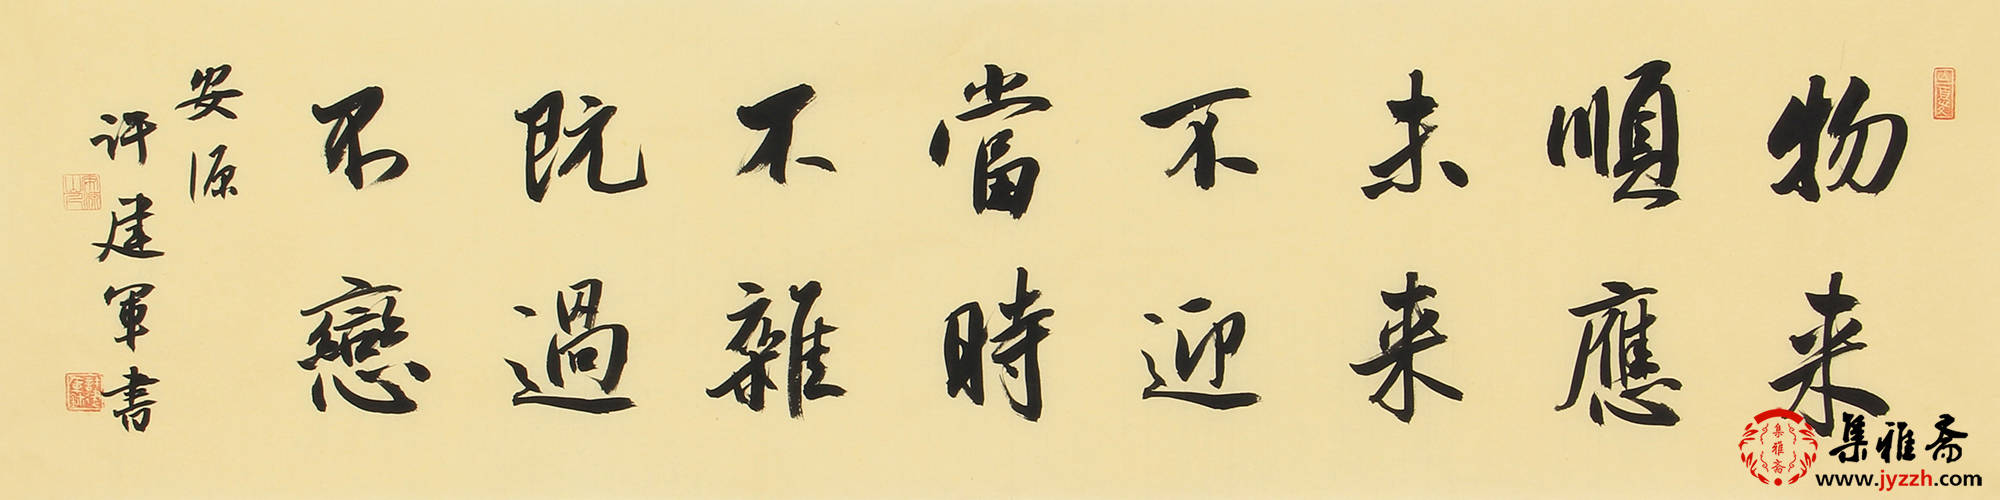 物来
順應
未来
不迎
當時
不雜
既過
不戀
安源
许建军書
集雅斋
集雅斋
www.jyzzh.com